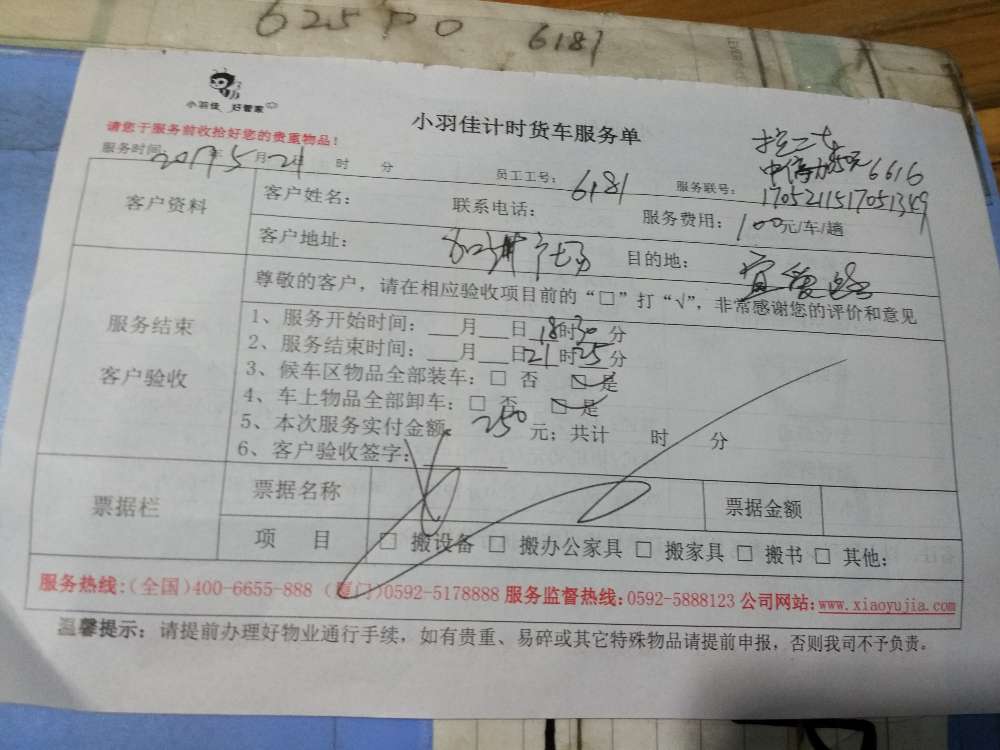 625 P0 6181
小羽佳 好管家
小羽佳计时货车服务单
请您于服务前收拾好您的贵重物品！
服务时间: 2017年5月21日 时 分 员工工号: 6181 服务联号: 6616
1705211517051349
客户资料
客户姓名: 联系电话: 服务费用: 100元/车/趟
客户地址: 目的地: 宜爱路
服务结束
客户验收
尊敬的客户，请在相应验收项目前的“□”打“√”，非常感谢您的评价和意见
1、服务开始时间: ___月___日18时30分
2、服务结束时间: ___月___日21时25分
3、候车区物品全部装车: □ 否 □ 是
4、车上物品全部卸车: □ 否 □ 是
5、本次服务实付金额: 250元；共计 时 分
6、客户验收签字:
票据栏
票据名称 票据金额
项 目 □ 搬设备 □ 搬办公家具 □ 搬家具 □ 搬书 □ 其他:
服务热线:(全国)400-6655-888 (厦门)0592-5178888 服务监督热线:0592-5888123 公司网站:www.xiaoyujia.com
温馨提示: 请提前办理好物业通行手续，如有贵重、易碎或其它特殊物品请提前申报，否则我司不予负责。